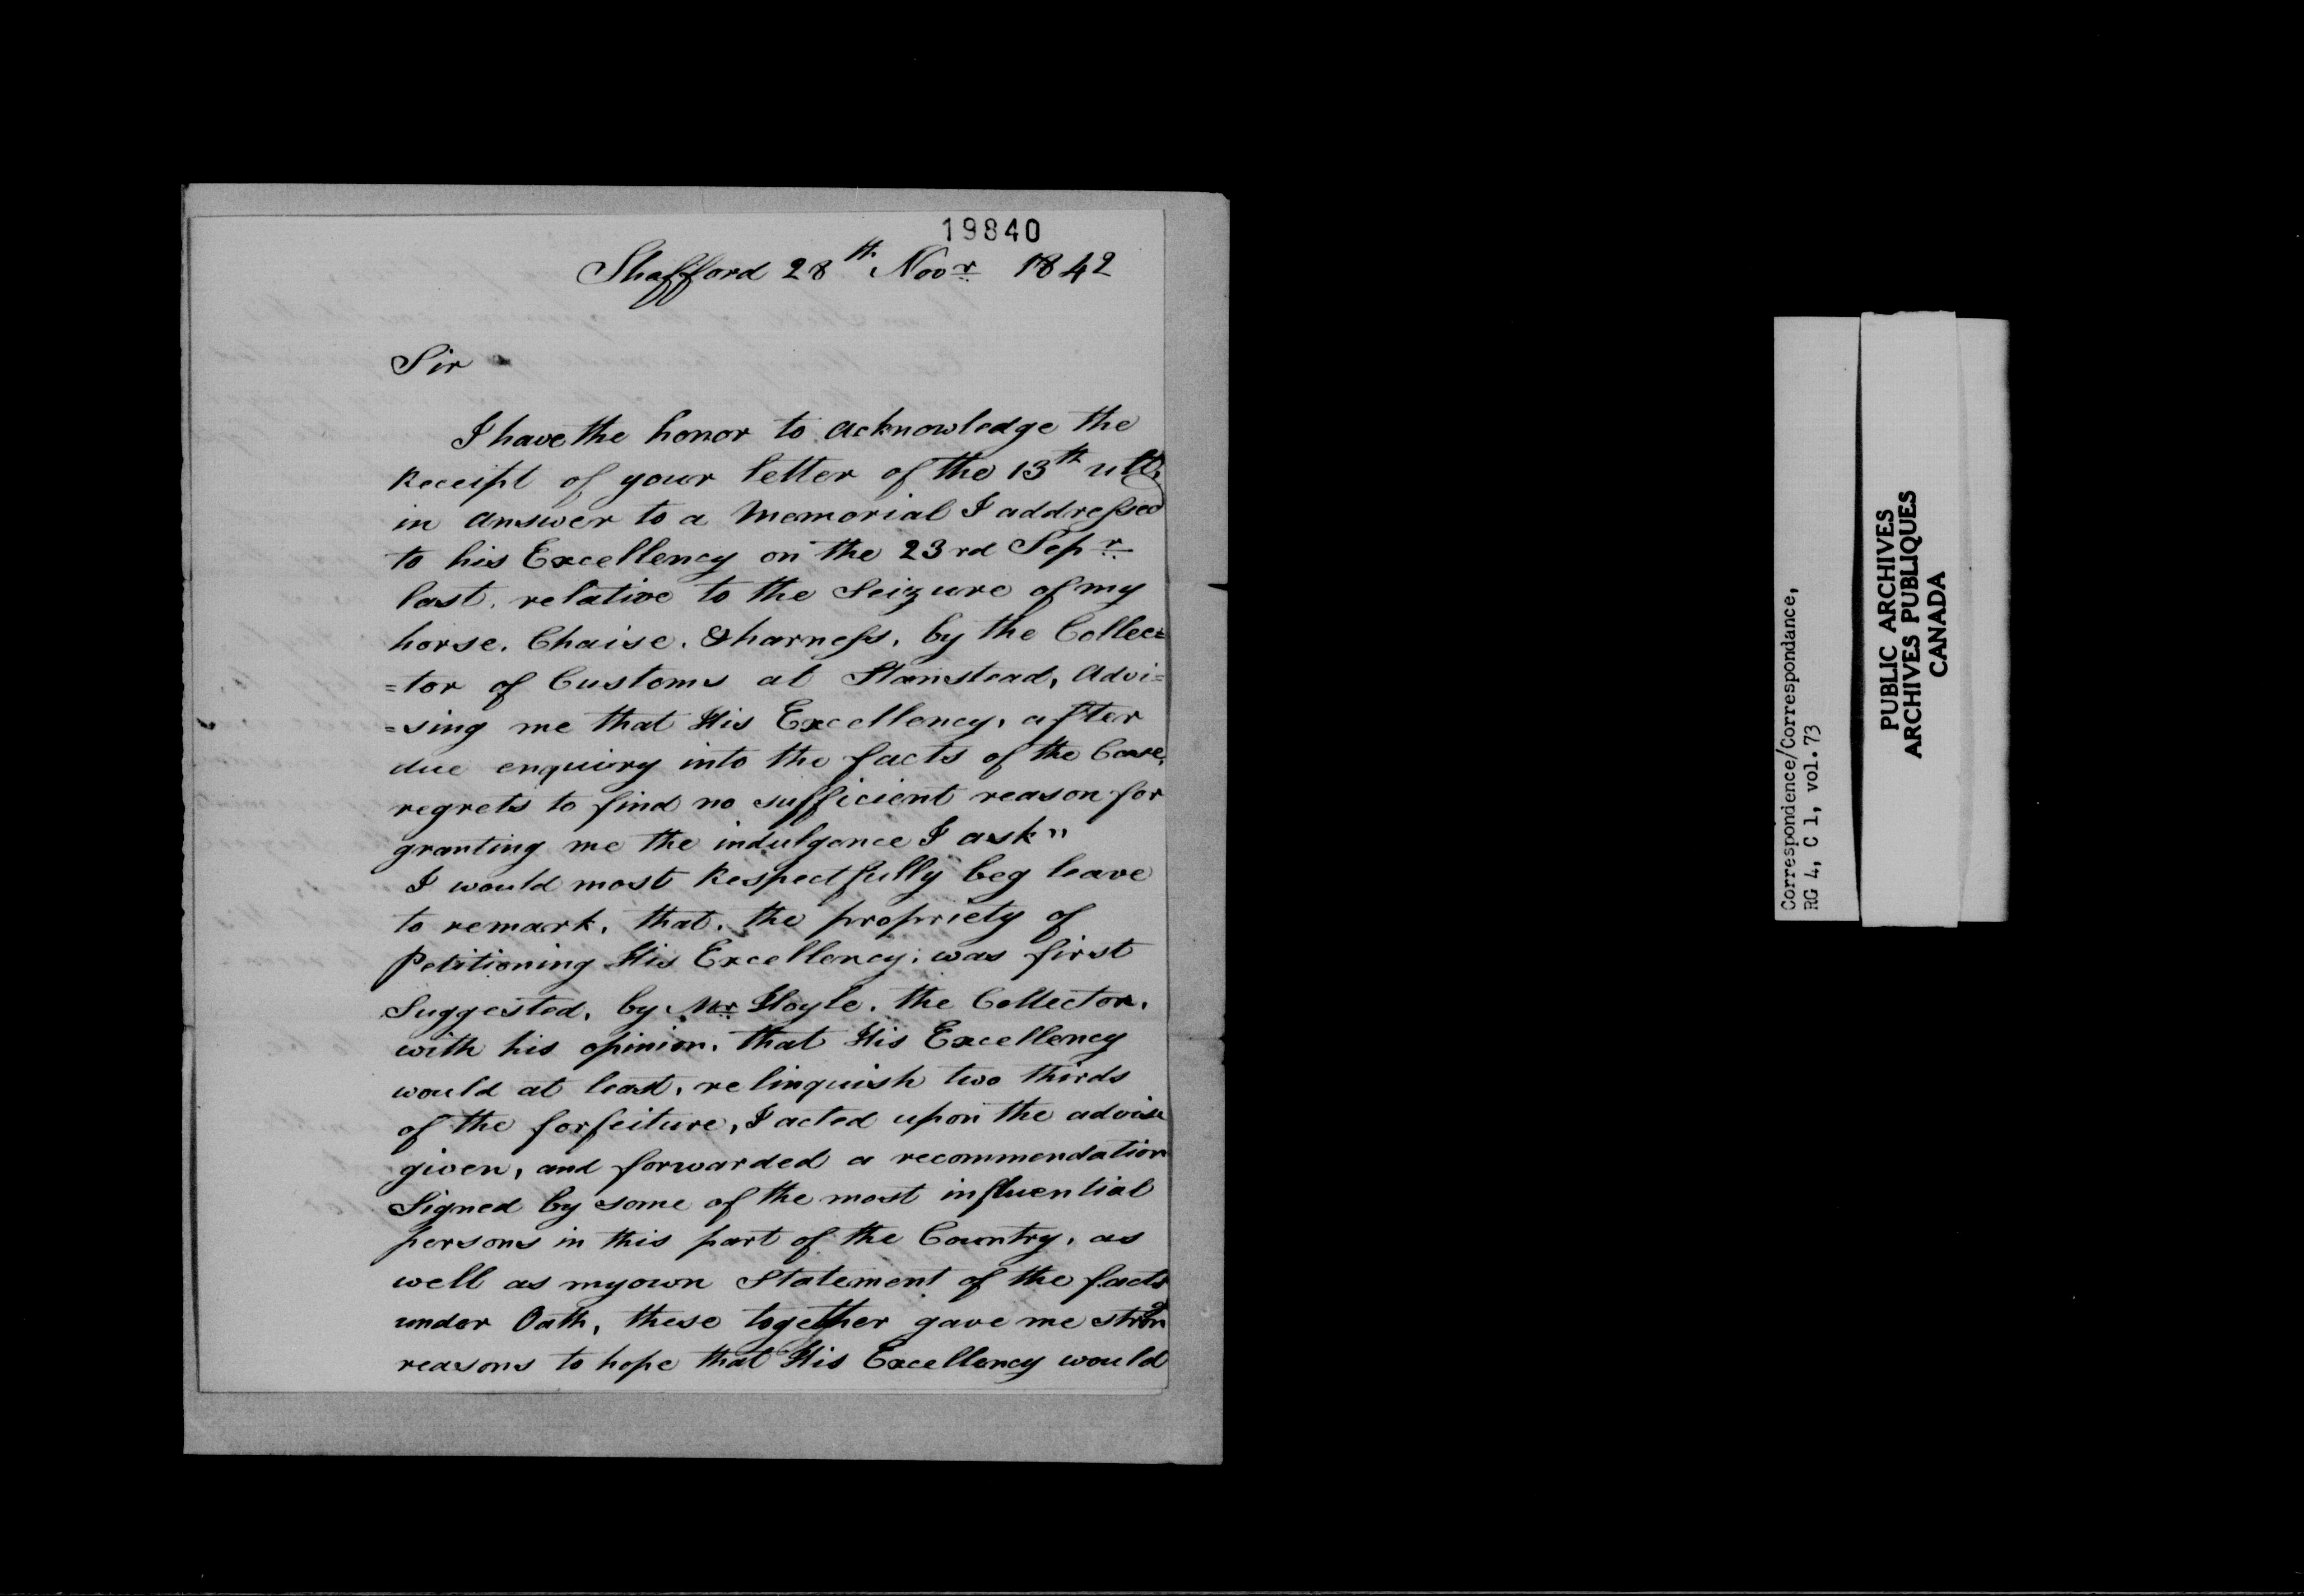 19840
Shafford 28th Novr 1842
Sir
I have the honor to acknowledge the
Receipt of your letter of the 13th ulto
in answer to a Memorial I addressed
to his Excellency on the 23rd Sepr
last, relative to the Seizure of my
horse, Chaise, & harness, by the Collec=
=tor of Customs at Stanstead, Advi=
=sing me that His Excellency, after
due enquiry into the facts of the Case,
regrets to find no sufficient reason for
granting me the indulgence I ask"
I would most Respectfully beg leave
to remark, that, the propriety of
Petitioning His Excellency; was first
Suggested, by Mr Hoyle, the Collector,
with his opinion, that His Excellency
would at least, relinquish two thirds
of the forfeiture, I acted upon the advise
given, and forwarded a recommendation
Signed by some of the most influential
persons in this part of the Country, as
well as my own Statement of the facts
under Oath, these together gave me strong
reasons to hope that His Excellency would
Correspondence/Correspondance,
RG 4, C 1, vol.73
PUBLIC ARCHIVES
ARCHIVES PUBLIQUES
CANADA